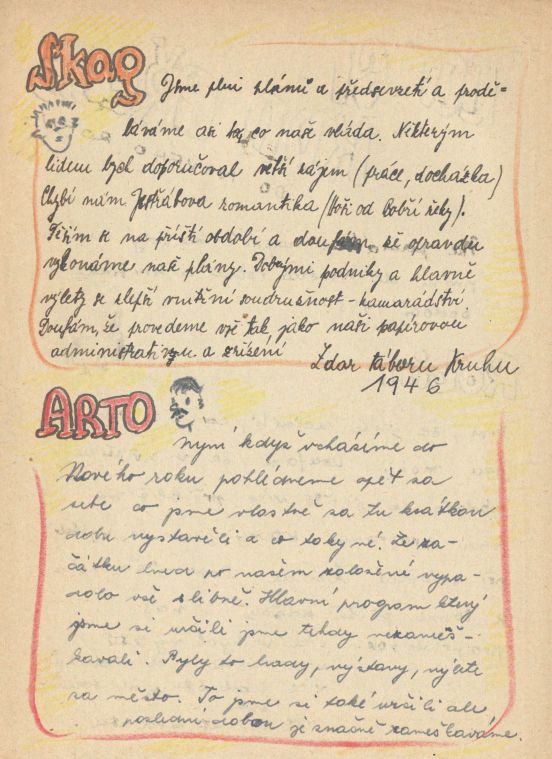 Skag
Jsme plni plánů a předsevzetí a podě-
láváme asi to, co naše vláda. Některým
lidem bych doporučoval větší zájem (práce, docházka)
Chybí nám Jestřábova romantika (Hoši od Bobří řeky).
Těším se na příští období a doufám že opravdu
vykonáme naše plány. Dobrými podniky a hlavně
výlety se zlepší vnitřní soudružnost - kamarádství
Doufám, že provedeme vše tak, jako naši papírovou
administrativu a zřízení
Zdar táboru Kruhu
1946
ARTO
Nyní když vcházíme do
Nového roku pohlédneme zpět za
sebe co jsme vlastně za tu krátkou
dobu vystavěli a co taky né. Ze za-
čátku hned po našem založení vypa-
dalo vše slibně. Hlavní program který
jsme si určili jsme tehdy nezaměš-
kavali. Byly to hady, výstavy, výlety
za město. To jsme si také určili ale
poslední dobou je značně zameškáváme.